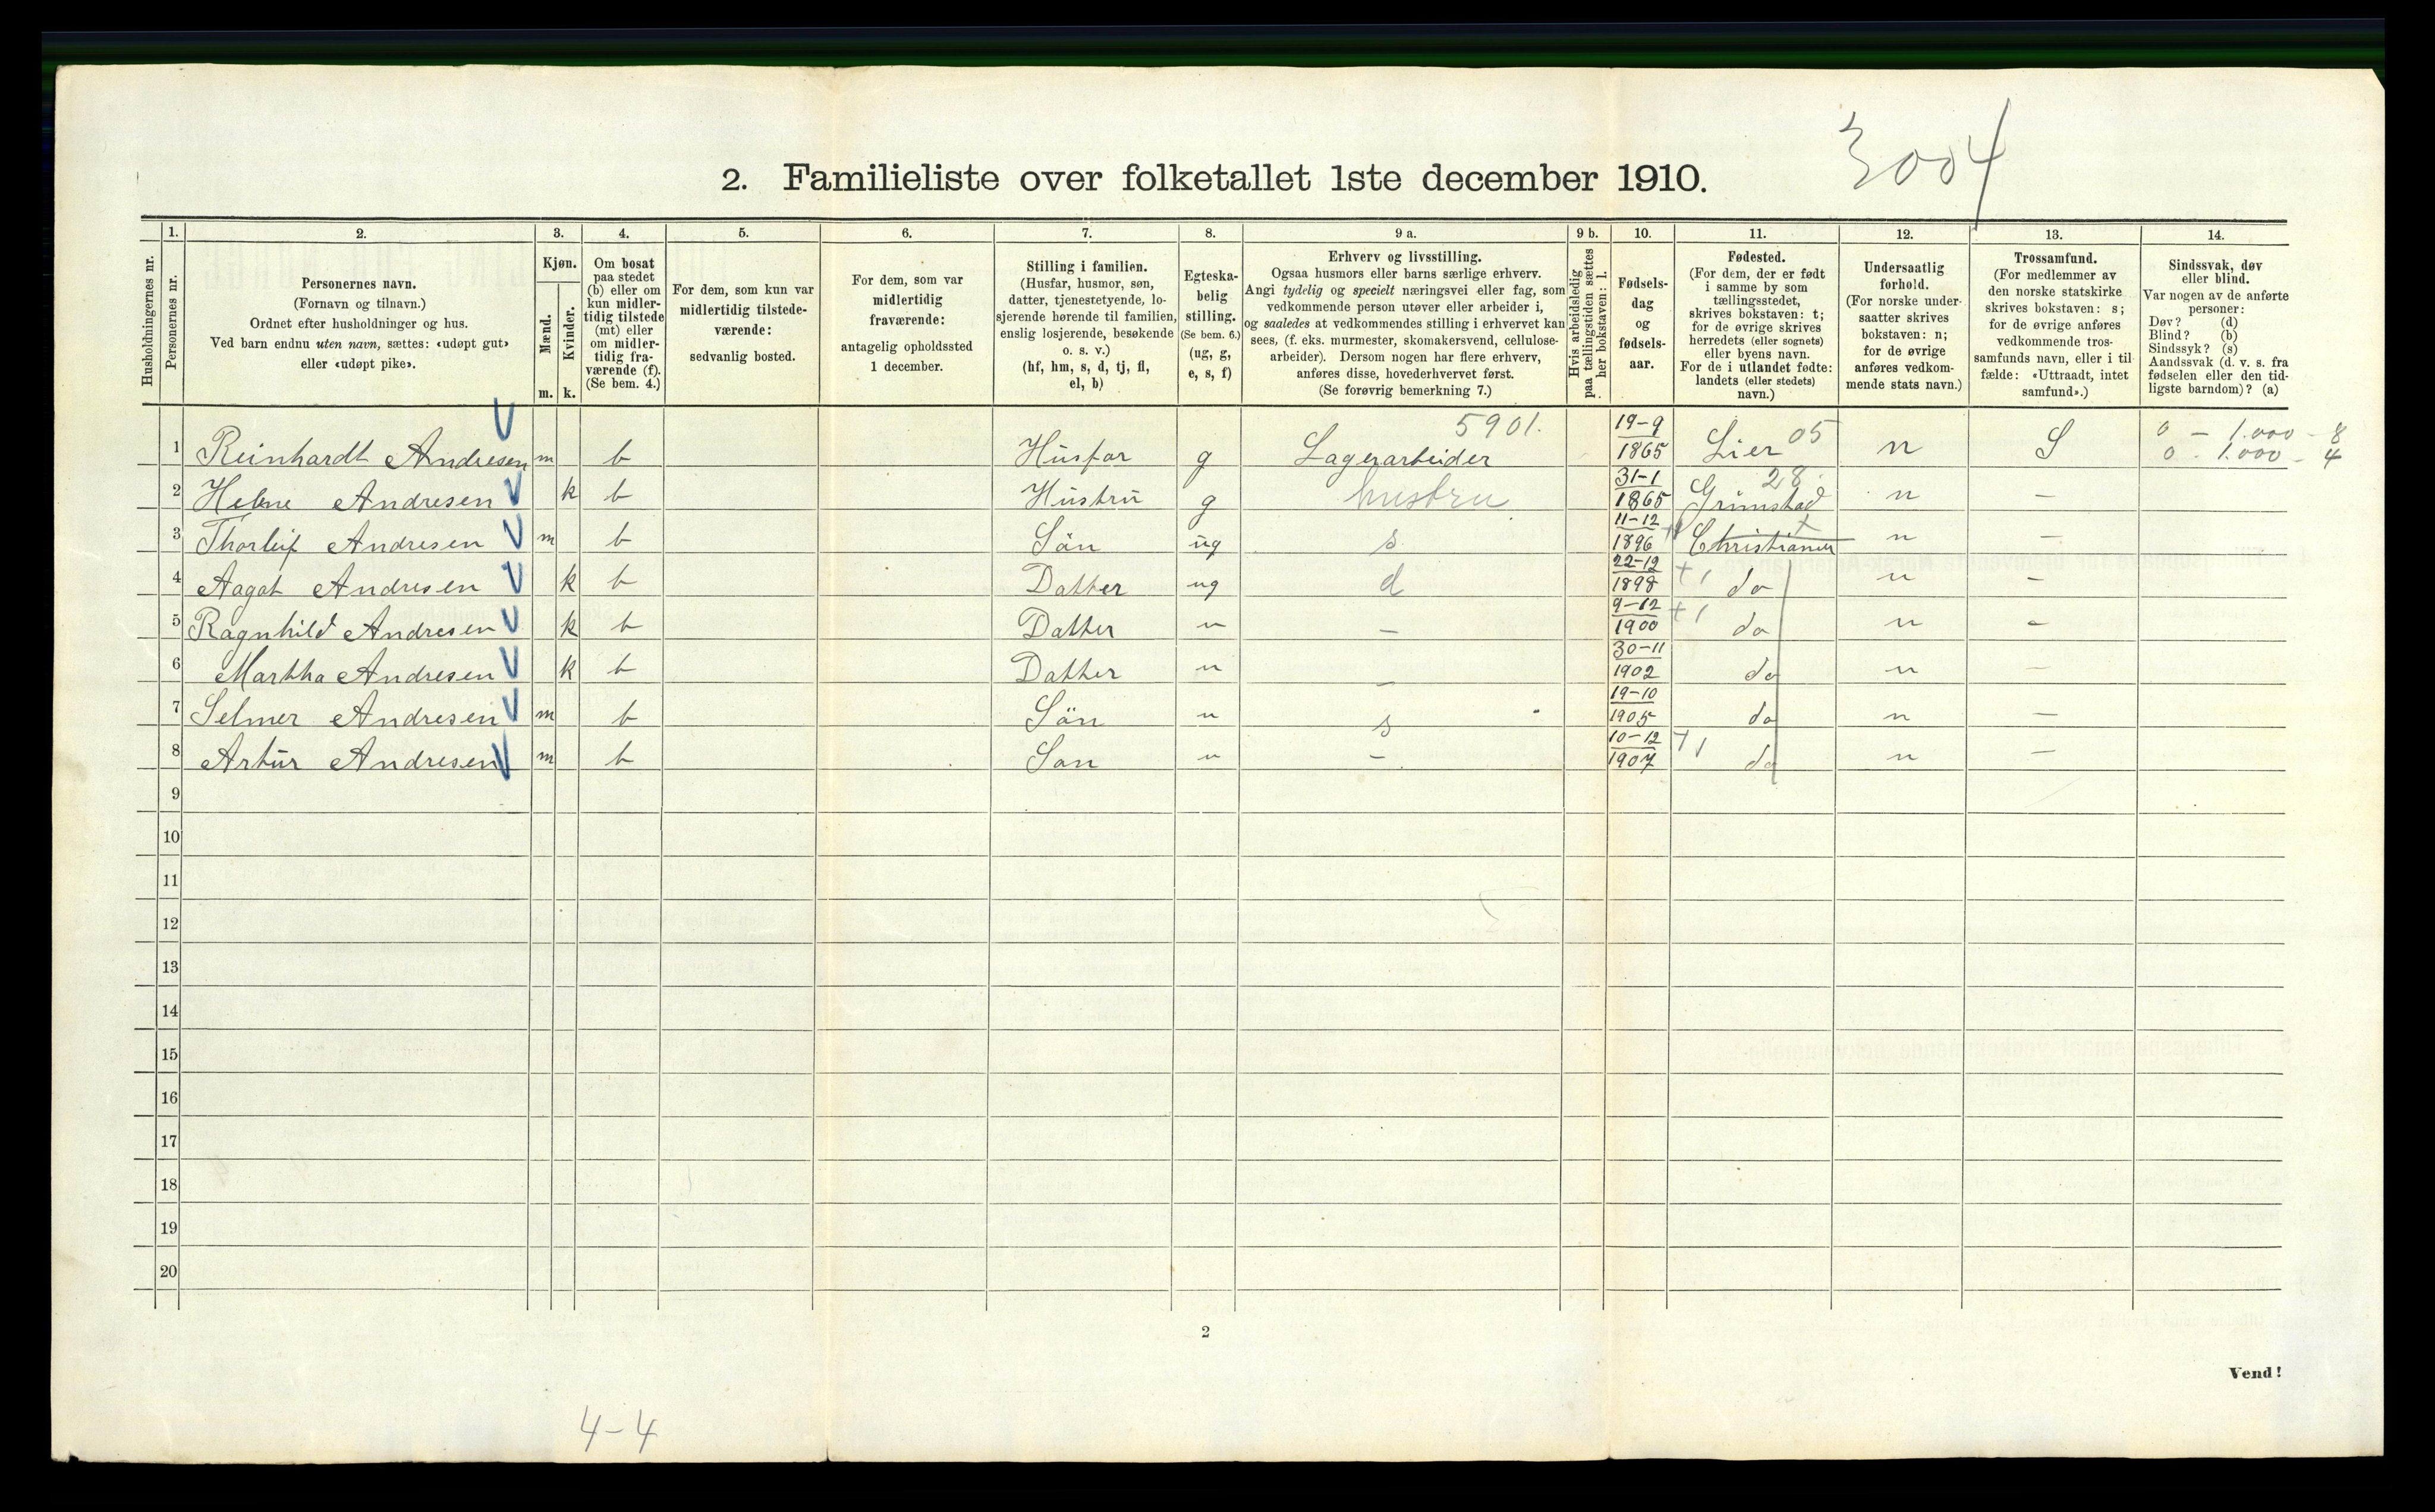 3004
2. Familieliste over folketallet 1ste december 1910.
Husholdningernes nr.
1.
Personernes nr.
2.
Personernes navn.
(Fornavn og tilnavn.)
Ordnet efter husholdninger og hus.
Ved barn endnu uten navn, sættes: «udøpt gut»
eller «udøpt pike».
3.
Kjøn.
Mænd.
Kvinder.
m. k.
4.
Om bosat
paa stedet
(b) eller om
kun midler-
tidig tilstede
(mt) eller
om midler-
tidig fra-
værende (f).
(Se bem. 4.)
5.
For dem, som kun var
midlertidig tilstede-
værende:
sedvanlig bosted.
6.
For dem, som var
midlertidig
fraværende:
antagelig opholdssted
1 december.
7.
Stilling i familien.
(Husfar, husmor, søn,
datter, tjenestetyende, lo-
sjerende hørende til familien,
enslig losjerende, besøkende
o. s. v.)
(hf, hm, s, d, tj, fl,
el, b)
8.
Egteska-
belig
stilling.
(Se bem. 6.)
(ug, g,
e, s, f)
9 a.
Erhverv og livsstilling.
Ogsaa husmors eller barns særlige erhverv.
Angi tydelig og specielt næringsvei eller fag, som
vedkommende person utøver eller arbeider i,
og saaledes at vedkommendes stilling i erhvervet kan
sees, (f. eks. murmester, skomakersvend, cellulose-
arbeider). Dersom nogen har flere erhverv,
anføres disse, hovederhvervet først.
(Se forøvrig bemerkning 7.)
9 b.
Hvis arbeidsledig
paa tællingstiden sættes
her bokstaven: l.
10.
Fødsels-
dag
og
fødsels-
aar.
11.
Fødested.
(For dem, der er født
i samme by som
tællingsstedet,
skrives bokstaven: t;
for de øvrige skrives
herredets (eller sognets)
eller byens navn.
For de i utlandet fødte:
landets (eller stedets)
navn.)
12.
Undersaatlig
forhold.
(For norske under-
saatter skrives
bokstaven: n;
for de øvrige
anføres vedkom-
mende stats navn.)
13.
Trossamfund.
(For medlemmer av
den norske statskirke
skrives bokstaven: s;
for de øvrige anføres
vedkommende tros-
samfunds navn, eller i til-
fælde: «Uttraadt, intet
samfund».)
14.
Sindssvak, døv
eller blind.
Var nogen av de anførte
personer:
Døv? (d)
Blind? (b)
Sindssyk? (s)
Aandssvak (d. v. s. fra
fødselen eller den tid-
ligste barndom)? (a)
5901. 19-9 05 0 - 1.000 - 8
1 Reinhardt Andresen m b Husfar g Lagerarbeider 1865 Lier n S 0 - 1.000 - 4
31-1 28
2 Helene Andresen k b Hustru g hustru 1865 Grimstad n —
11-12
3 Thorleif Andresen m b Sön ug s 1896 Christiania n —
22-12
4 Aagot Andresen k b Datter ug d 1898 do n —
9-12
5 Ragnhild Andresen k b Datter " — 1900 do n —
30-11
6 Martha Andresen k b Datter " — 1902 do n —
19-10
7 Selmer Andresen m b Sön " s 1905 do n —
10-12
8 Artur Andresen m b Son " — 1907 do n —
9
10
11
12
13
14
15
16
17
18
19
20
2
Vend!
4-4